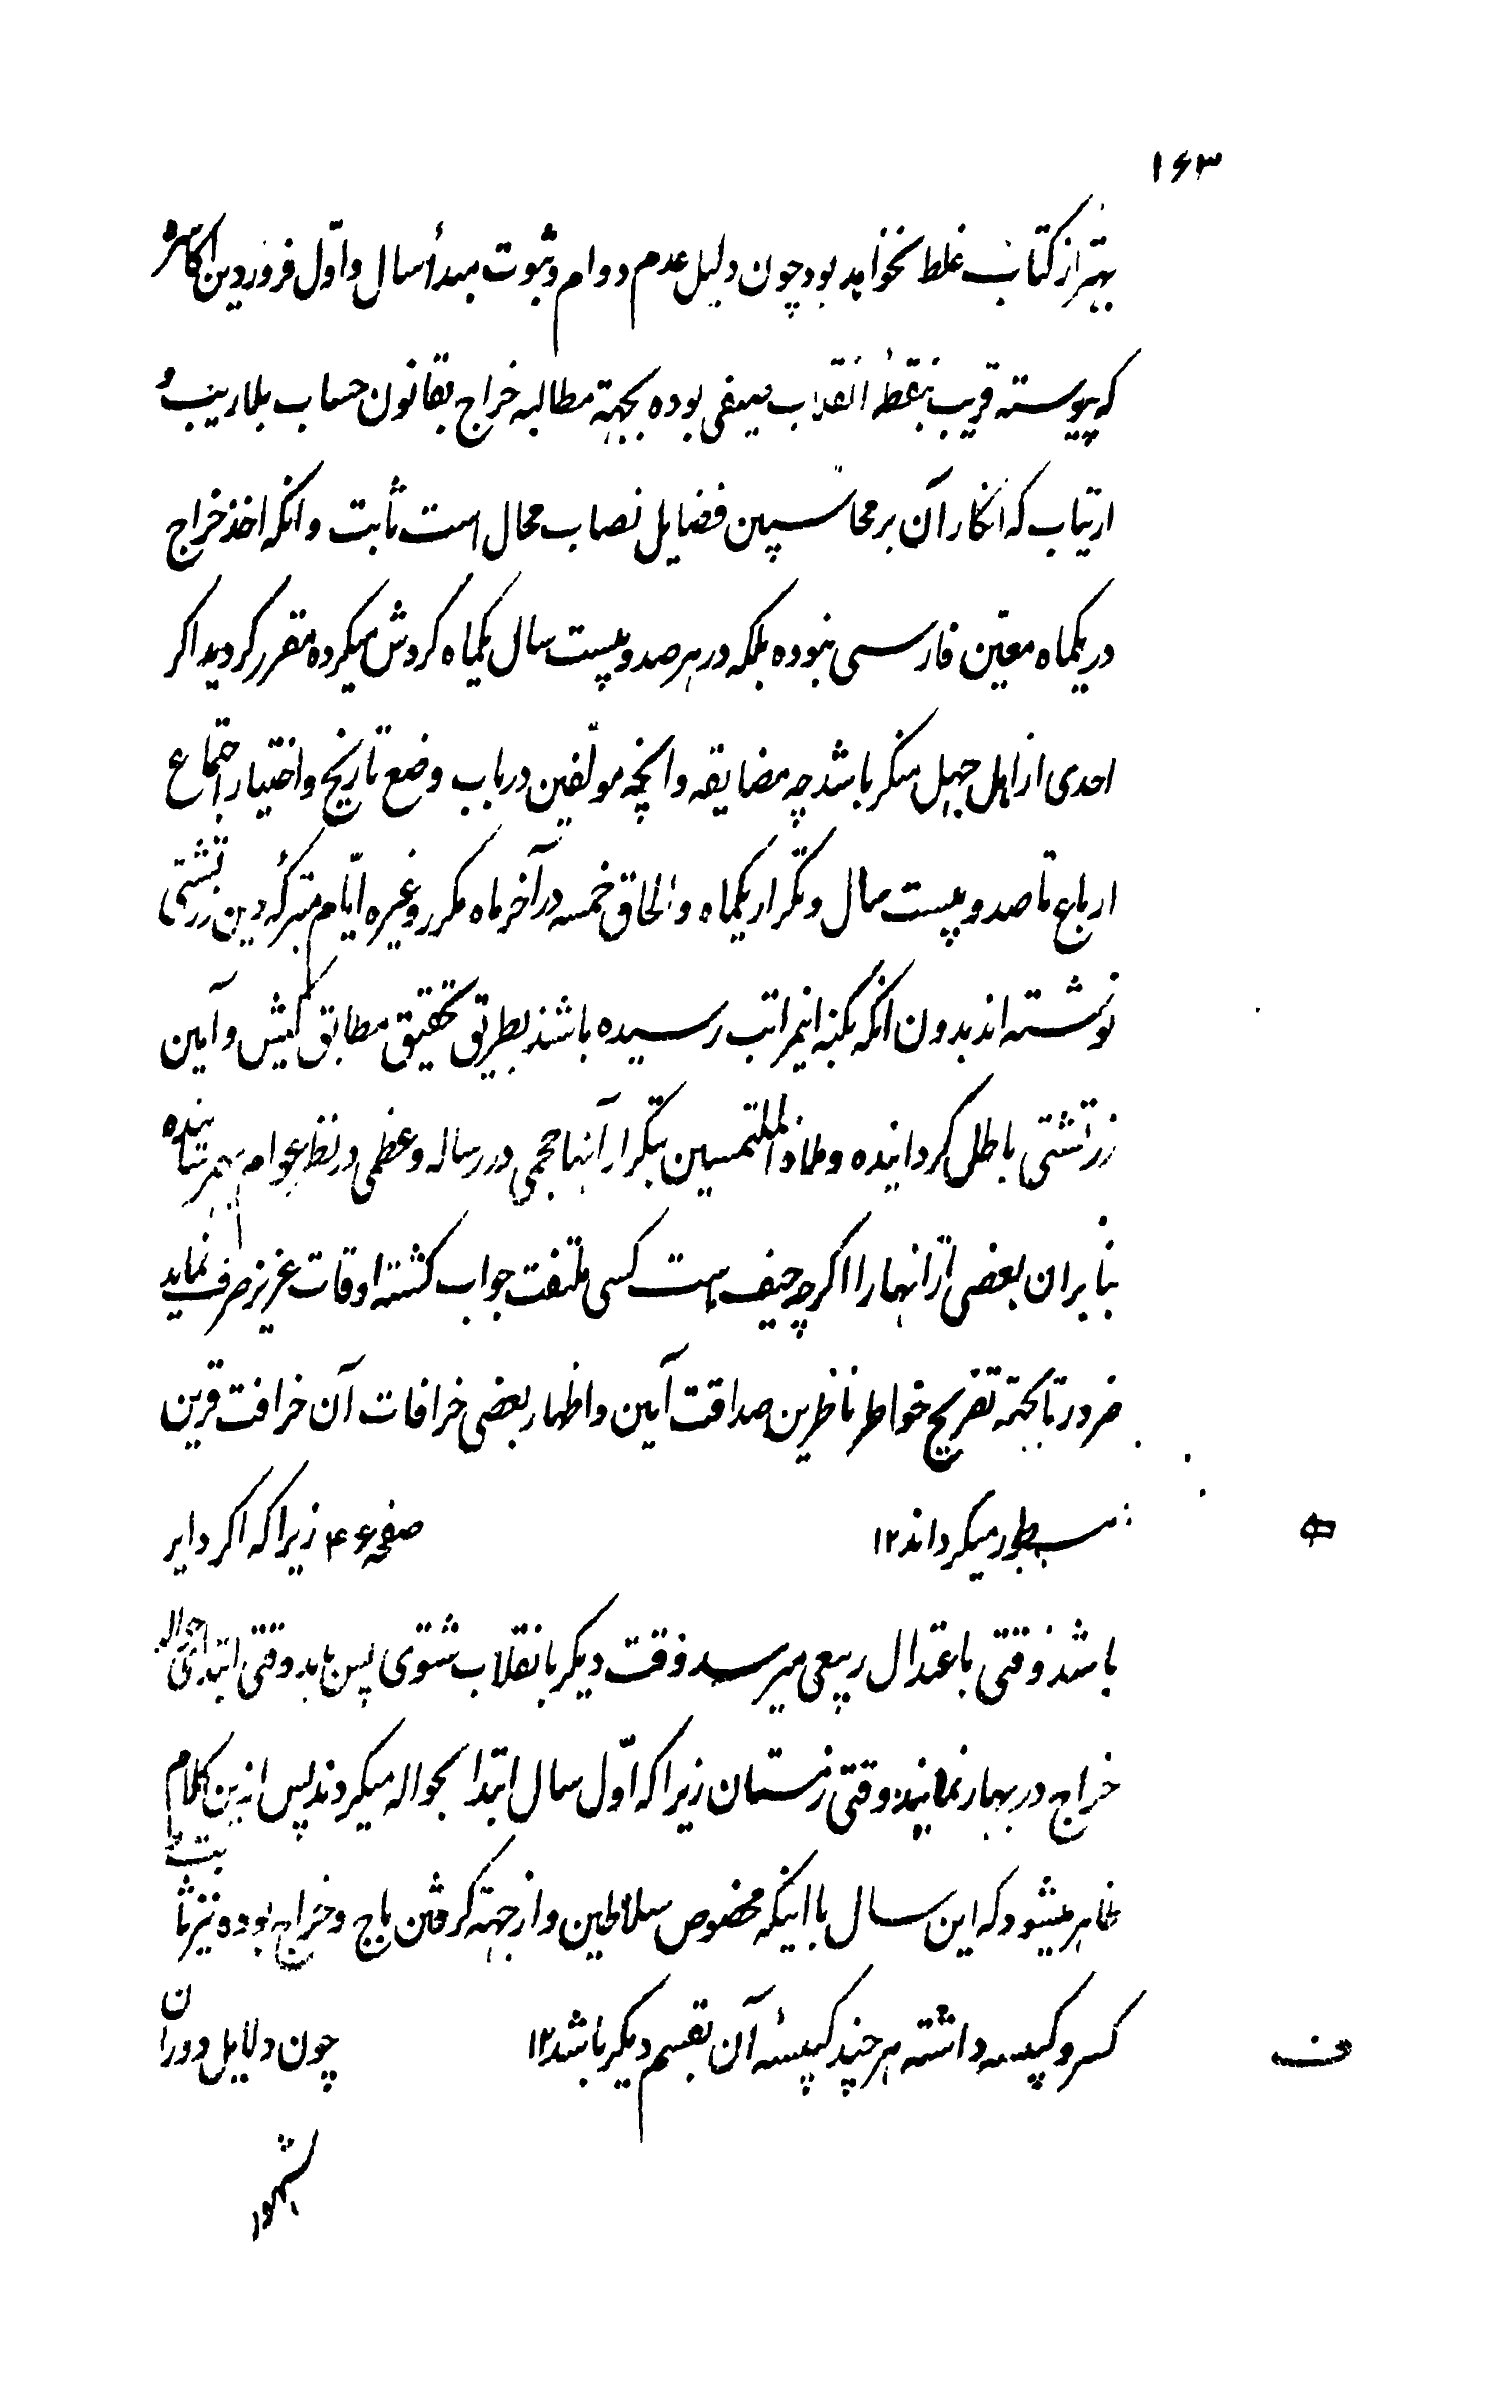 ۱۶۳
بهتر از کتاب غلط نخواهد بود چون دلیل عدم دوام و ثبوت مبدأ سال و اوّل فروردین اکاسره
که پیوسته قریب بنقطهٔ انقلاب صیفی بوده بجهته مطالبه خراج بقانون حساب بلاریب و
ارتیاب که انکار آن بر محاسبین فضایل نصاب محال است ثابت و انکه اخذ خراج
در یکماه معیّن فارسی نبوده بلکه در هر صد و بیست سال یکماه کردش میکرده مقرر کردید اکر
احدی از اهل جهل منکر باشد چه مضایقه و انچه مولّفین در باب وضع تاریخ و اختیار اجتماع
ارباع تا صد و بیست سال و تکرار یکماه و الحاق خمسه در آخر ماه مکرر و غیره ایّام متبرکهٔ دین زرتشتی
نوشته اند بدون انکه بکنه اینمراتب رسیده باشند بطریق تحقیق مطابق کیش و آیین
زرتشتی باطل کردانیده و ملاذ الملتمسین بتکرار آنها حجمی در رساله و عظمی در نظر عوام بهمرسانیده
بنابران بعضی از انهارا اکرچه حیف است کسی ملتفت جواب کشته اوقات عزیز صرف نماید
ضرورتا بجهته تفریح خواطر ناظرین صداقت آیین و اظهار بعضی خرافات آن خرافت قرین
مسطور میکرداند ۱۲ صفحه ۴۶ زیرا که اکر دایر
باشد وقتی باعتدال ربیعی میرسد و وقت دیکر بانقلاب شتوی پس باید وقتی ابتدای حواله
خراج در بهار نمایند و وقتی زمستان زیرا که اوّل سال ابتدا بحواله میکردند پس از این کلام
ظاهر میشود که این سال با اینکه مخصوص سلاطین و از جهته کرفتن باج و خراج بوده نیز ثابت
کسر و کبیسه داشته هر چند کبیسهٔ آن بقسم دیکر باشد ۱۲ چون دلایل دوران
ف
شهور